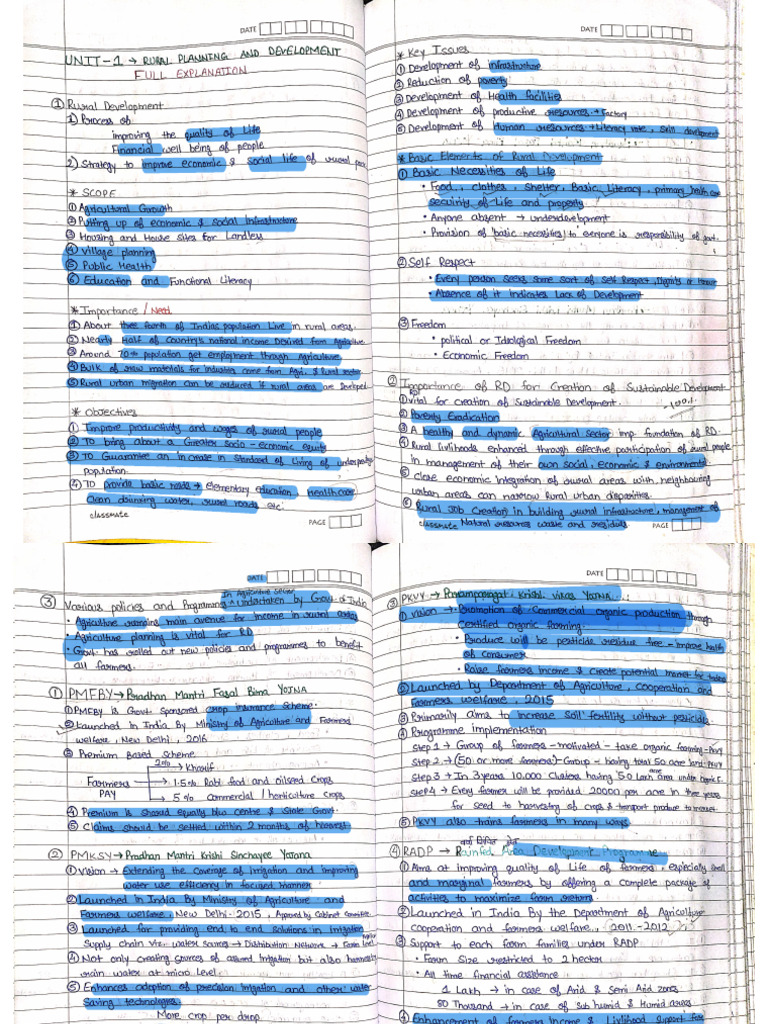 DATE
UNIT-1 → RURAL PLANNING AND DEVELOPMENT
FULL EXPLANATION
① Rural Development
1) Process of
improving the quality of Life
Financial well being of people
2) Strategy to improve economic & social life of rural poor
* SCOPE
① Agricultural Growth
② Putting up of economic & social Infrastructure
③ Housing and House sites for Landless
④ Village planning
⑤ Public Health
⑥ Education and Functional Literacy
* Importance / Need
① About three fourth of Indias population Live in rural areas.
② Nearly Half of Country's national income Desired from Agriculture
③ Around 70% population get employment through Agriculture
④ BULK of raw materials for industries come from Agri. & Rural sector
⑤ Rural urban migration can be reduced if rural areas are Developed
* Objectives
① Improve productivity and wages of rural people
② To bring about a Greater Socio-economic equity
③ To Guarantee an increase in Standard of Living of
population
④ To provide basic needs → elementary education, Healthcare
Clean drinking water, rural roads etc.
classmate
PAGE
DATE
* Key Issues
① Development of infrastructure
② Reduction of poverty
③ Development of Health facilities
④ Development of productive resources → Factory
⑤ Development of Human resources → Literacy rate, Skill development
* Basic Elements of Rural Development
① Basic Necessities of Life
• Food, clothes, Shelter, Basic Literacy, primary health care
security of Life and property
• Anyone absent → underdevelopment
• Provision of 'basic necessities' to everyone is responsibility of govt.
② Self Respect
• Every person seeks some sort of Self Respect, Dignity or Honour
• Absence of it indicates Lack of Development
③ Freedom
• political or Idological Freedom
• Economic Freedom
② Importance of RD for Creation of Sustainable Development
① RD vital for creation of Sustainable Development.
② Poverty Eradication
③ A healthy and dynamic Agricultural Sector imp foundation of RD.
④ Rural Livlihoods enhanced through effective participation of rural people
in management of their own social, economic & environmental
⑤ close economic integration of rural areas with neighbouring
urban areas can narrow Rural urban disparities.
⑥ Rural Job Creation in building rural infrastructure, management of
classmate Natural resources waste and residues
PAGE
DATE
③ Various policies and Programmes in Agriculture Sector undertaken by Govt of India
• Agriculture remains main avenue for income in rural areas
• Agriculture planning is vital for RD
• Govt. has rolled out new policies and programmes to benefit
all farmers.
① PMFBY → Pradhan Mantri Fasal Bima YOJNA
① PMFBY is Govt Sponsored crop insurance Scheme.
② Launched in India By Ministry of Agriculture and Farmers
welfare, New Delhi, 2016
③ Premium Based Scheme
Farmers PAY
2% → Kharif
→ 1.5% Rabi food and oilseed Crops
→ 5% commercial / horticulture Crops
④ Premium is shared equally b/w centre & State Govt.
⑤ Claims should be settled within 2 months of harvest
② PMKSY → Pradhan Mantri Krishi Sinchayee Yojana
① Vision → Extending the coverage of irrigation and improving
water use efficiency in focused manner
② Launched in India By Ministry of Agriculture and
Farmers welfare, New Delhi. 2015, Approved by Cabinet Committee
③ Launched for providing end to end Solutions in irrigation
Supply chain Viz. water Sources → Distribution Network → Farm level
④ Not only creating sources of assured Irrigation but also
rain water at micro Level
⑤ Enhances adoption of precision irrigation and other water
Saving technologies
More crop per drop
DATE
③ PKVY → Paramparagat Krishi Vikas YOJNA
① Vision → • Promotion of Commercial organic production through
Certified organic farming.
• Produce will be pesticide residue free - improve health
of consumer
• Raise farmers income & create potential market for
② Launched by Department of Agriculture, cooperation and
farmers welfare, 2015
③ Primarily aims to increase Soil fertility without pesticides
④ Programme implementation
Step 1 → Group of farmers - motivated - take organic farming - PKVY
Step 2 → (50 or more farmers) - Group - having total 50 acre land - PKVY
Step 3 → In 3 years 10,000 Clusters having 5.0 Lakh area under organic F.
Step 4 → Every farmer will be provided 20000 per acre in three years
for seed to harvesting of crops & transport produce to market
⑤ PKVY also trains farmers in many ways
④ RADP → Rainfed Area Development Programme
① Aims at improving quality of Life of farmers, especially small
and marginal farmers by offering a complete package of
activities to maximize farm return
② Launched in India By the Department of Agriculture
cooperation and farmers welfare, 2011-2012
③ Support to each farm families under RADP
• Farm Size restricted to 2 hectar
• All time financial assistance
1 Lakh → in case of Arid & Semi Arid zones
80 Thousand → in case of Sub humid & Humid areas
④ Enhancement of farmers income & Livlihood Support for